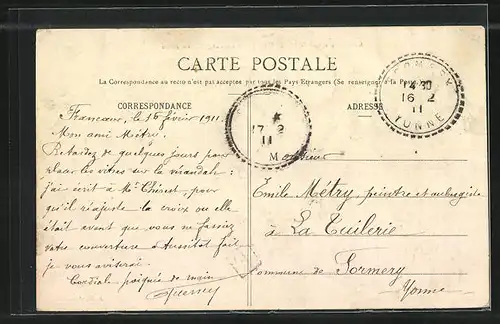 CARTE POSTALE
La Correspondance au recto n'est pas acceptée par tous les Pays Etrangers (Se renseigner à la Poste)
CORRESPONDANCE
ADRESSE
14 30
16 - 2
11
YONNE
17 - 2
11
le 16 février 1911.
Mon ami Métry.
Retardez de quelques jours pour
placer les vitres sur la
j'ai écrit à Mr pour
qu'il réajuste la croix ou elle
était avant que vous ne fassiez
votre couverture aussitôt fait
je vous aviserai.
Cordiale poignée de main
Monsieur
Emile Métry, peintre et aubergiste
à La Tuilerie
Commune de Sormery
Yonne